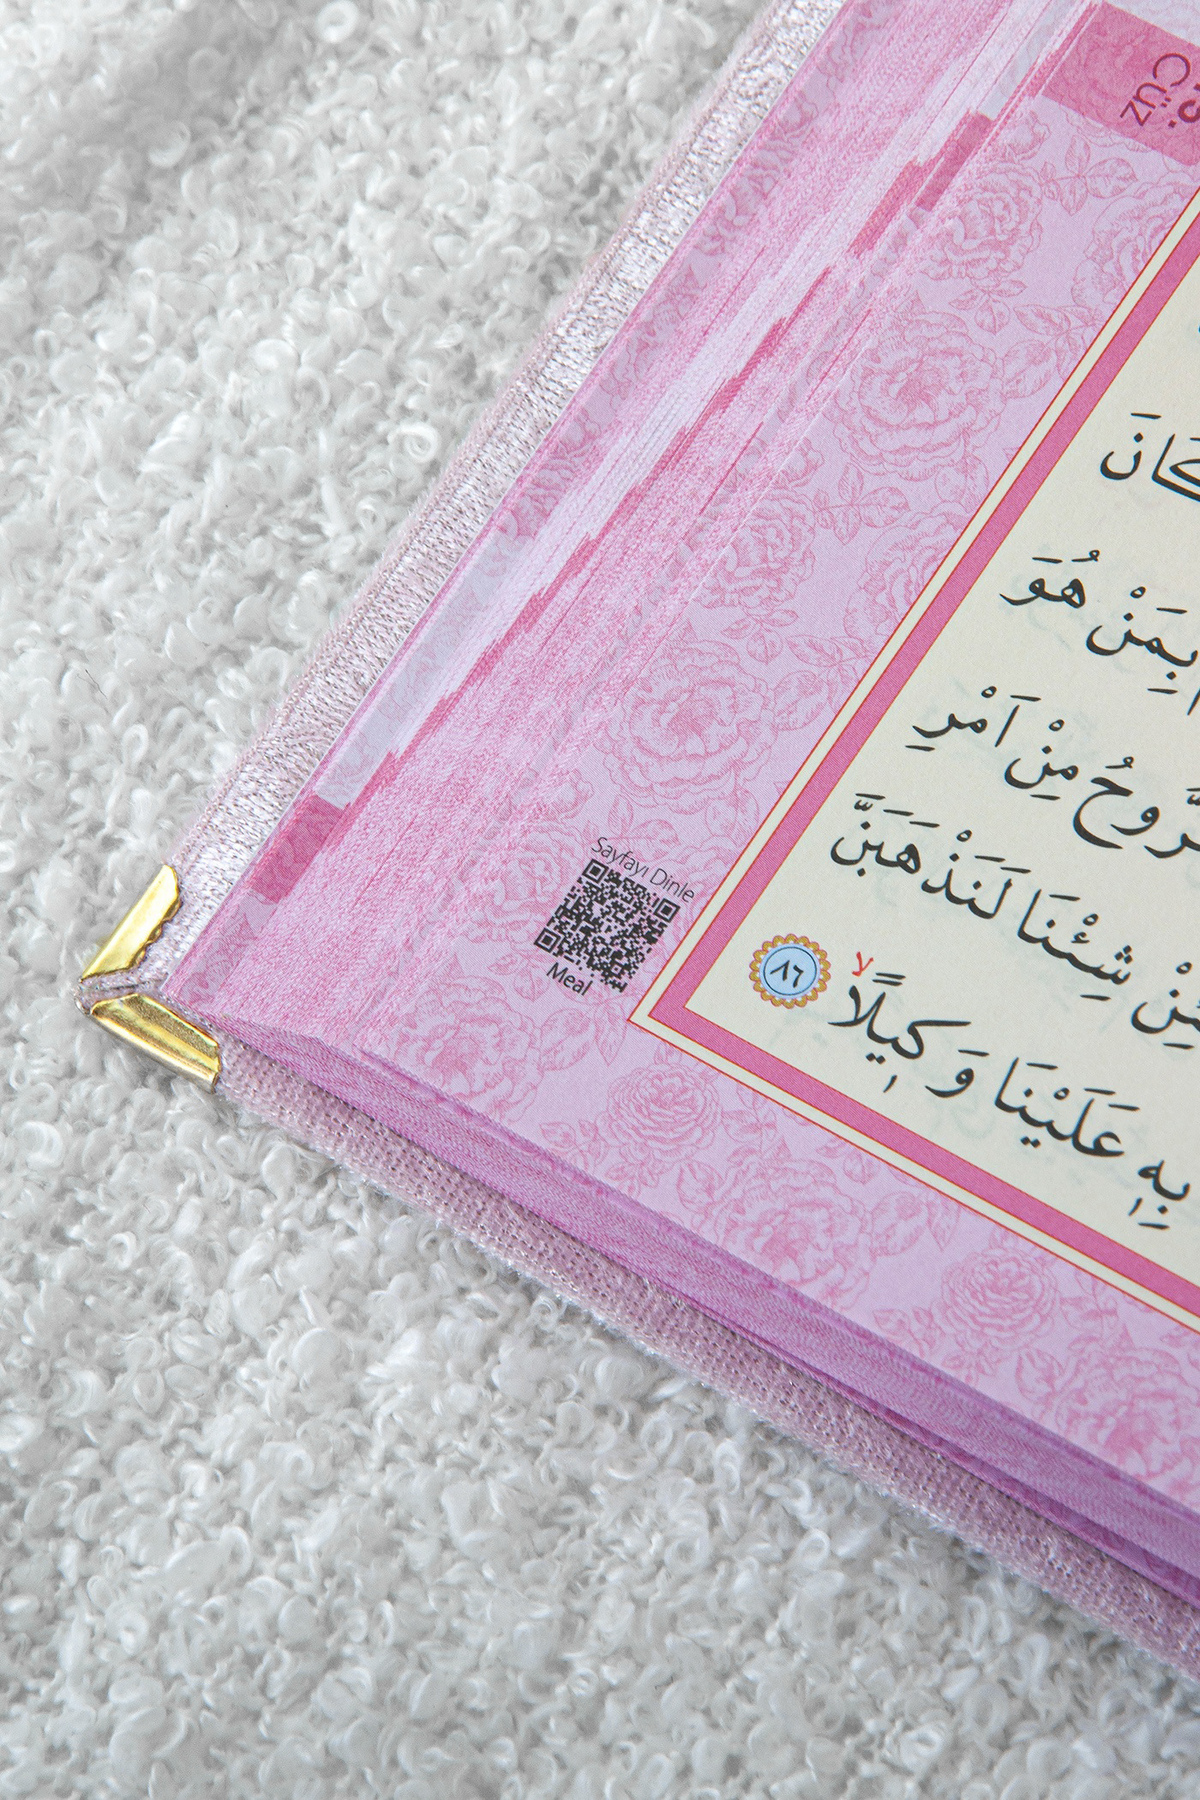 15.
Cüz
كَانَ
بِمَنْ هُوَ
الرُّوحُ مِنْ اَمْرِ
شِئْنَا لَنَذْهَبَنَّ
بِه۪ عَلَيْنَا وَك۪يلًاۙ ﴿٨٦﴾
Sayfayı Dinle
Meal